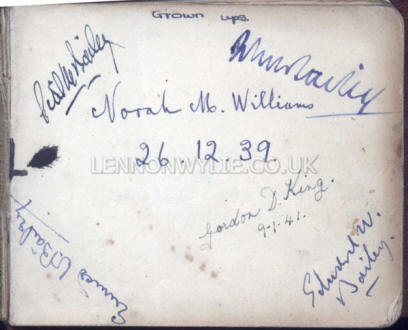 Grown ups.
Bailey
Norah M. Williams
26.12.39.
LENNONWYLIE.CO.UK
Gordon D. King.
9-1-41.
Edward W.
Bailey.
Bailey